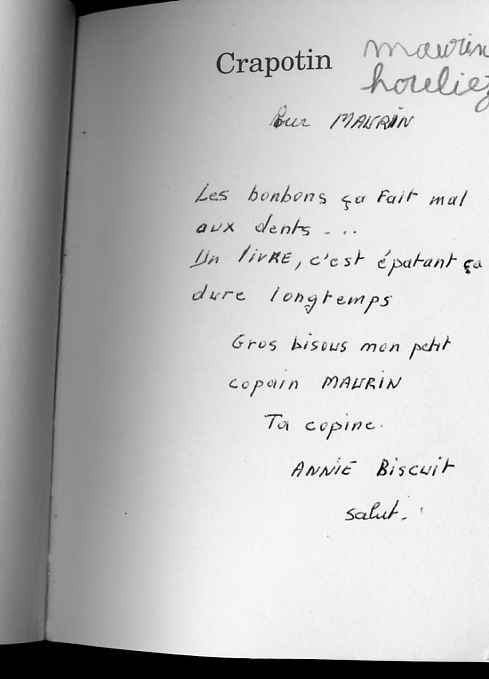 Crapotin
maurin
houliez
Pour MAURIN
Les bonbons ça fait mal
aux dents - ..
Un LIVRE, c'est épatant ça
dure longtemps
Gros bisous mon petit
copain MAURIN
Ta copine.
ANNIE BISCUIT
salut.